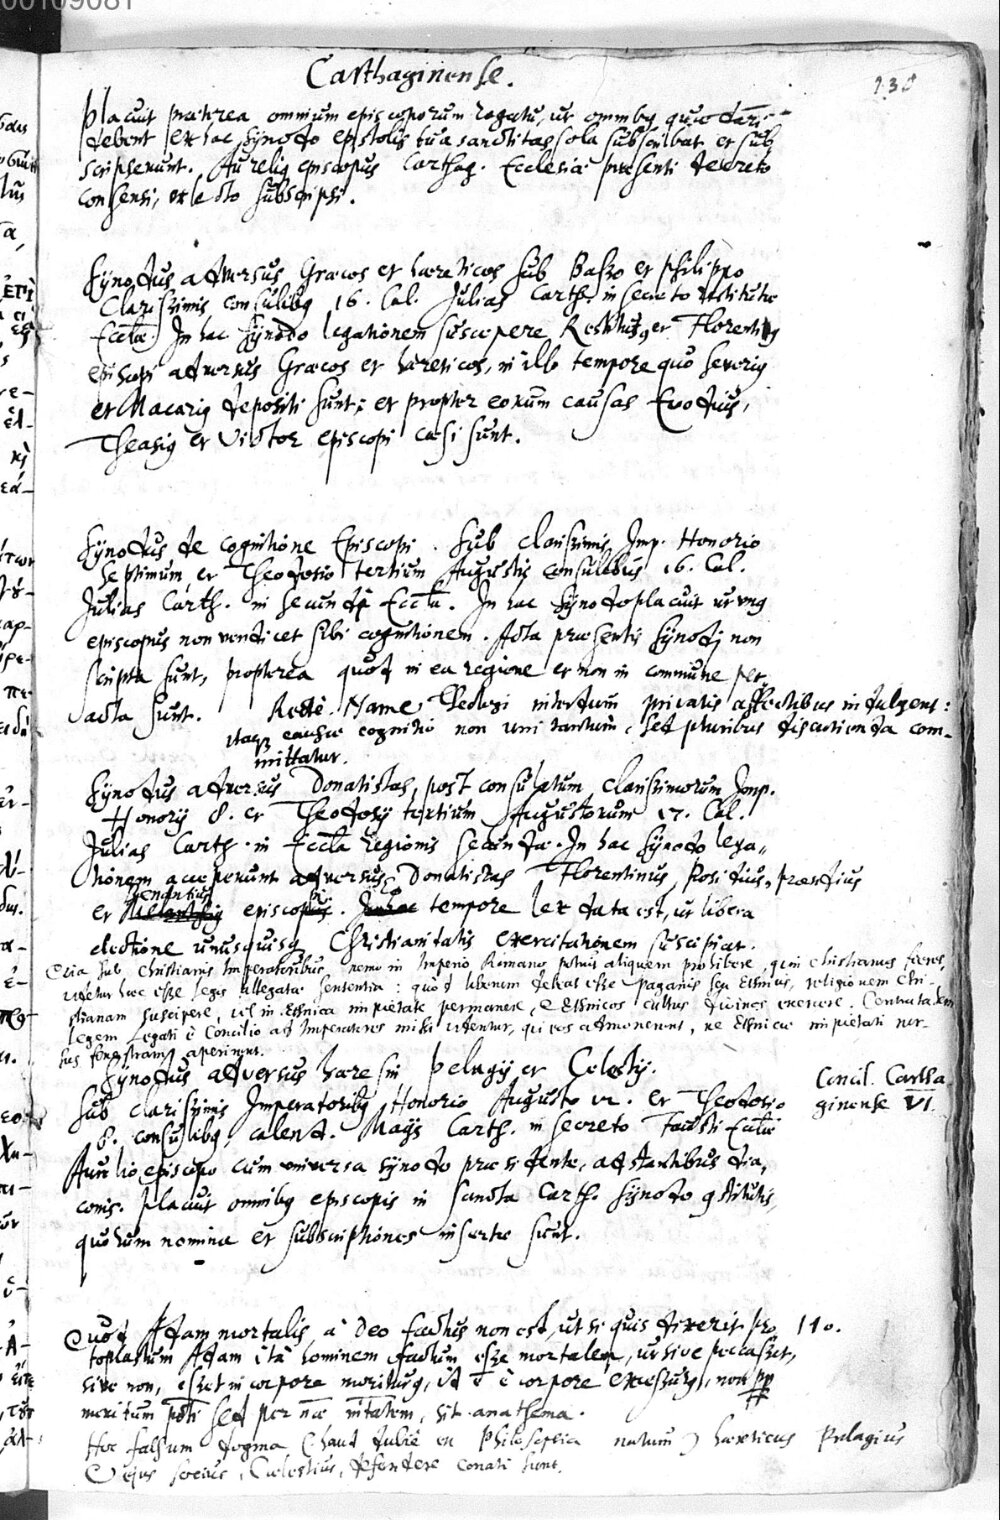 00109081
Carthaginense.
238
Placuit praeterea omnium episcoporum legatu, ut omnibus quae dari
debent ex hac synodo epistolis tua sanctitas sola subscribat et sub
scripserunt. Aurelius episcopus Carthag. Ecclesiae praesenti decreto
consensi, et lecto subscripsi.
Synodus adversus Graecos et haereticos sub Basso et Philippo
Clarissimis consulibus 16. Cal. Julias Carth. in secreto restitutae
Eccliae. In hac synodo legationem suscepere Restitutus et Florentius
episcopi adversus Graecos et haereticos, in illo tempore quo Severius
et Macarius depositi sunt; et propter eorum causas Evodius,
Theasius et Victor episcopi caesi sunt.
Synodus de cognitione Episcopi. Sub clarissimis Imp. Honorio
Septimum et Theodosio tertium Augustis consulibus 16. Cal.
Julias Carth. in secunda Eccla. In hac synodo placuit ut unus
episcopus non vendicet sibi cognitionem. Acta praesentis synodi non
scripta sunt, propterea quod in ea regione et non in commune per
acta sunt. Recte. Name interdum privatis affectibus indulgent:
itaque causae cognitio non uni tantum, sed pluribus discutienda com-
mittatur.
Synodus adversus Donatistas, post consulatum clarissimorum Imp.
Honorij 8. et Theodosij tertium Augustorum 17. Cal.
Julias Carth. in Eccla regionis secundae. In hac synodo lega-
tionem acceperunt adversus Donatistas Florentinus, Possidius, Praesidius
et Benenatius episcopi. tempore lex data est, ut libera
electione unusquisque Christianitatis exercitationem suscipiat.
Etiã sub Christianis Imperatoribus nemo in Imperio Romano potuit aliquem prohibere, quin christianus fieret,
videtur haec esse legis allegatae sententia: quod liberum debeat esse paganis seu Ethnicis, religionem Chri-
stianam suscipere, vel in Ethnica impietate permanere, & Ethnicos cultus divinos exercere. Contra talem
legem Legati è Concilio ad Imperatores missi videntur, qui eos admonerent, ne Ethnicae impietati rur-
sus fenestram aperirent.
Synodus adversus haeresin Pelagij et Celestij.
Concil. Cartha
ginense VI.
Sub clarissimis Imperatoribus, Honorio Augusto VI. et Theodosio
8. consulibus, calend. Maijs Carth. in secreto Fausti Eccliae
Aurelio episcopo cum universa synodo praesidente, adstantibus dia,
conis. Placuit omnibus episcopis in sancta Carth. synodo constitutis,
quorum nomina et subscriptiones insertae sunt.
Quod Adam mortalis à Deo factus non est, ut si quis dixerit pro 110.
toplastum Adam ità hominem factum esse mortalem, ut sive peccasset,
sive non, esset in corpore moriturus, id ẽ è corpore excessurus, non pp
meritum pcti sed per nae mitatem, sit anathema.
Hoc falsum dogma (haud dubiè ex Philosophia natum) haereticus Pelagius
& ejus socius, Caelestius, defendere conati sunt.